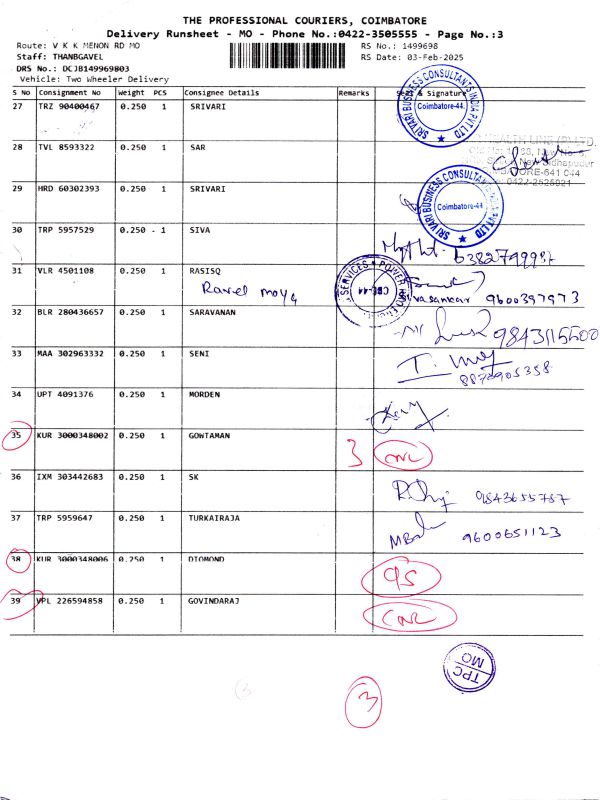 THE PROFESSIONAL COURIERS, COIMBATORE
Delivery Runsheet - MO - Phone No.:0422-3505555 - Page No.:3
Route: V K K MENON RD MO RS No.: 1499698
Staff: THANBGAVEL RS Date: 03-Feb-2025
DRS No.: DCJB149969803
Vehicle: Two Wheeler Delivery
S No Consignment No Weight PCS Consignee Details Remarks Seal & Signature
27 TRZ 90400467 0.250 1 SRIVARI
SRI VARI BUSINESS CONSULTANTS INDIA PVT LTD
Coimbatore-44.
28 TVL 8593322 0.250 1 SAR
COIMBATORE-641 044
0422-2525021
29 HRD 60302393 0.250 1 SRIVARI
SRI VARI BUSINESS CONSULTANTS INDIA PVT LTD
Coimbatore-44.
30 TRP 5957529 0.250 - 1 SIVA
6382799987
31 VLR 4501108 0.250 1 RASISQ
SERVICES POWER
CBE-44
vasankar 9600397973
32 BLR 280436657 0.250 1 SARAVANAN
9843115500
33 MAA 302963332 0.250 1 SENI
8870905358
34 UPT 4091376 0.250 1 MORDEN
35 KUR 3000348002 0.250 1 GOWTAMAN 3 CNL
36 IXM 303442683 0.250 1 SK
9843655787
37 TRP 5959647 0.250 1 TURKAIRAJA
9600651123
38 KUR 3000348006 0.250 1 DIOMOND
39 VPL 226594858 0.250 1 GOVINDARAJ CNL
TPC
MO
3
3